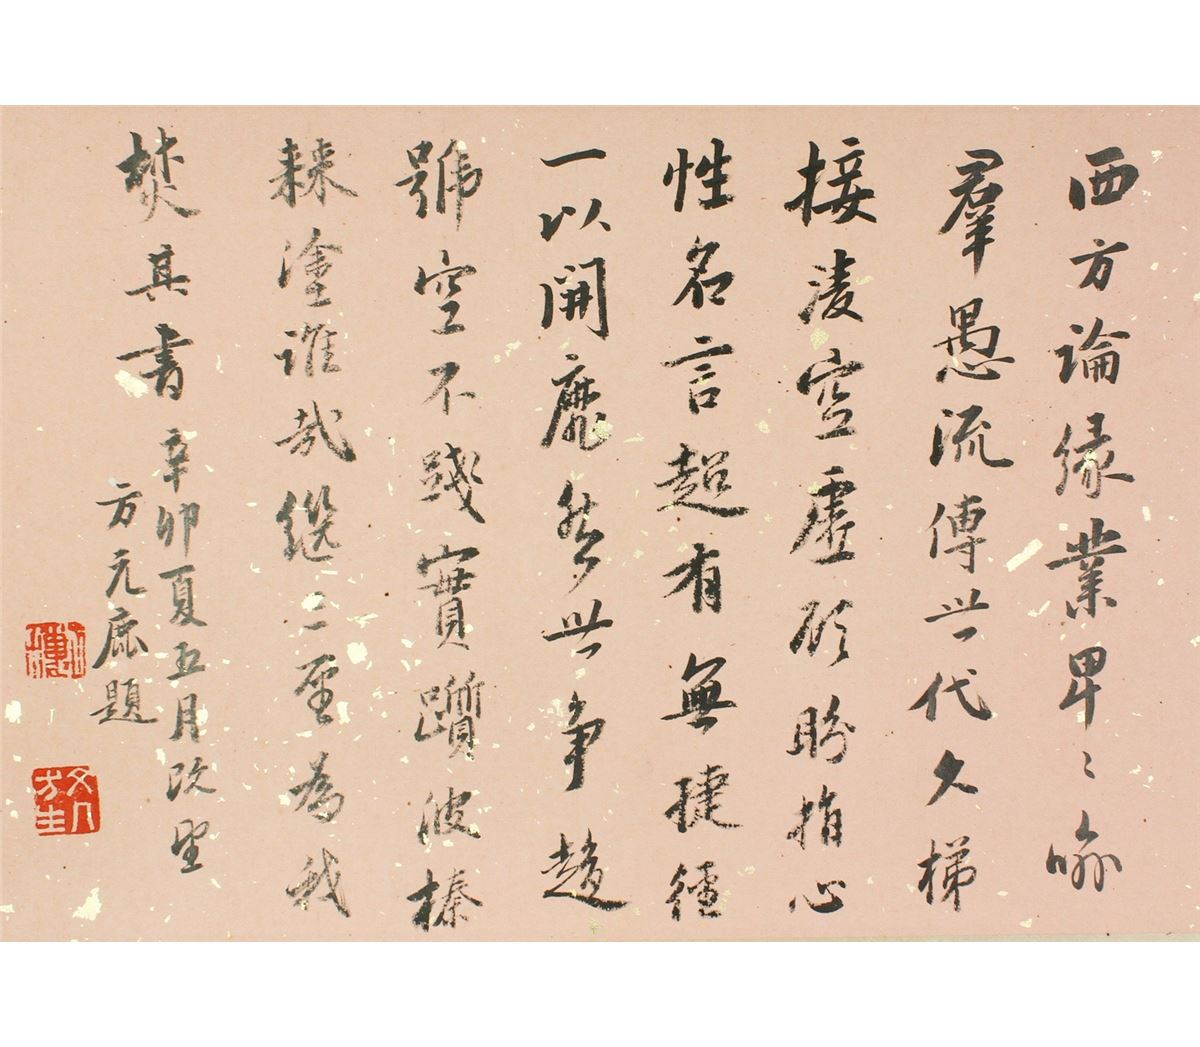 西方論緣業卑〻喻
羣愚流傳世代久梯
接淩空虛顧盼指心
性名言超有無捷徑
一以開靡然世爭趨
號空不踐實躓彼榛
棘塗誰哉繼三聖為我
焚其書 辛卯夏五月既望
方元鹿題